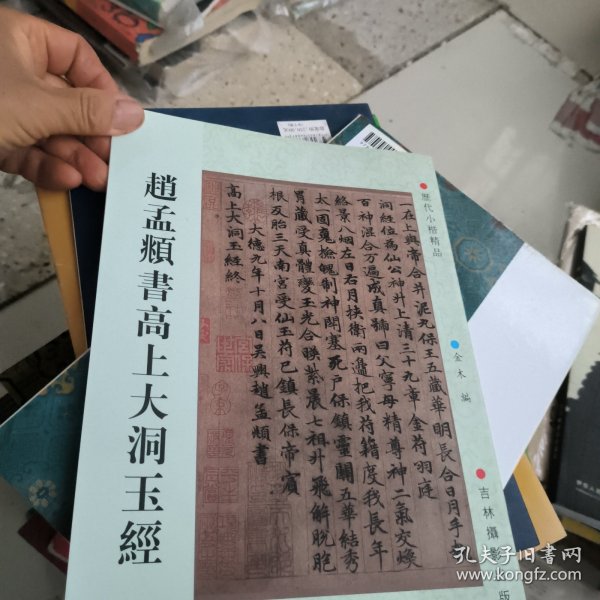 趙孟頫書高上大洞玉經
歷代小楷精品
金木 編
吉林攝
版
一在上與帝合并泥丸保玉五藏華明長合日月手
洞經位為仙公神升上清三十九章金符羽庭
百神混合万遍成真號曰父寧母精尊神二氣交煥
絡景八烟左日右月挾衛兩邊把我符籍度我長年
太圂魔撿魄制神閉塞死戶保鎮靈關五華結秀
胃藏受真體變玉光合映紫晨七祖升飛解脫胞
根反胎三天南宮受仙玉符已鎮長保帝賓
高上大洞玉經終
大德九年十月八日吳興趙孟頫書
孔夫子旧书网
www.kongfz.com